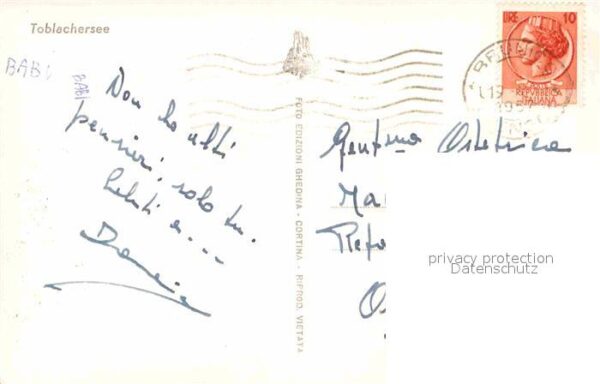 Toblachersee
BABI
BABI
Non ho altri
pensieri, solo tu.
Saluti a...
FOTO EDIZIONI GHEDINA - CORTINA - RIPROD. VIETATA
LIRE 10
REPUBBLICA
ITALIANA
Gent.ma Ostetrica
Ma
privacy protection
Datenschutz